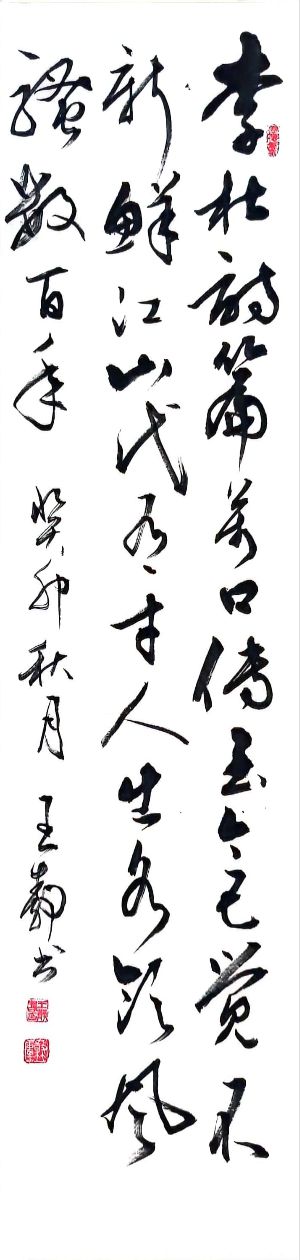 李杜詩篇萬口傳至今已覺不
新鮮江山代有才人出各領風
騷數百年 癸卯秋月 王書